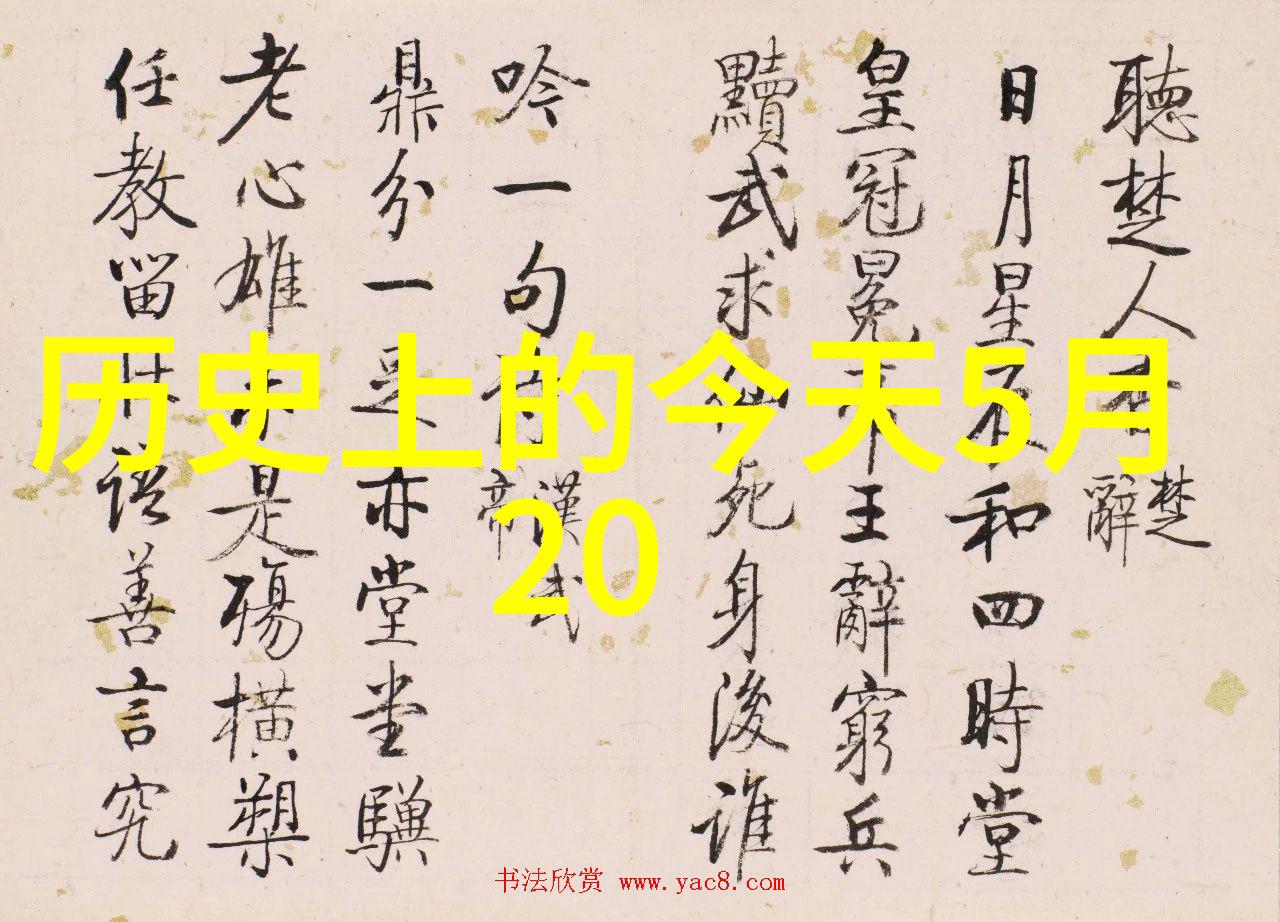 历史上的今天5月
20
聽楚人 楚辭
日月星辰和四時堂
皇冠冕王辭窮兵
黷武求死身後誰
吟一句 漢武帝
鼎分一足亦堂堂驥
老心雄是殤橫槊
任教留語善言究
书法欣赏 www.yac8.com